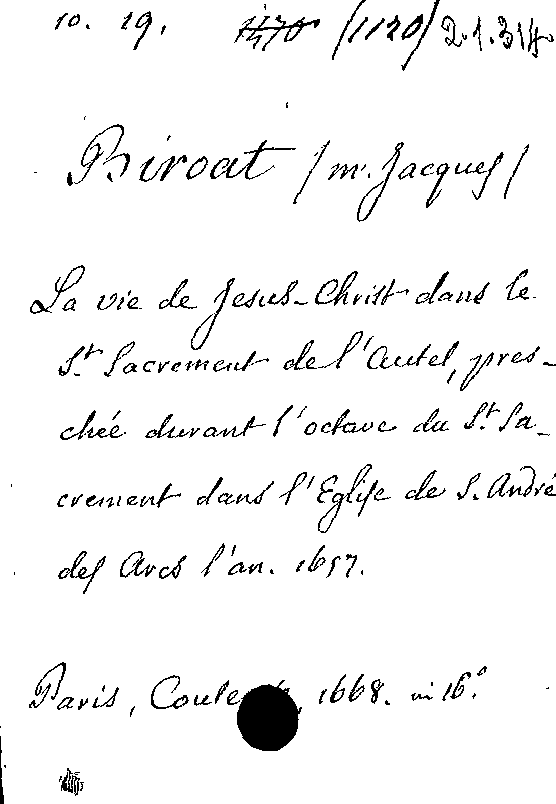 10. 19. 1470 (1120) 2.1.314
Biroat (m. Jacques)
La vie de Jesus-Christ dans le
St. Sacrement de l'Autel, pres-
chée durant l'octave du St. Sa-
crement dans l'Eglise de S. André
des Arcs l'an. 1657.
Paris, 1668. in 16°.